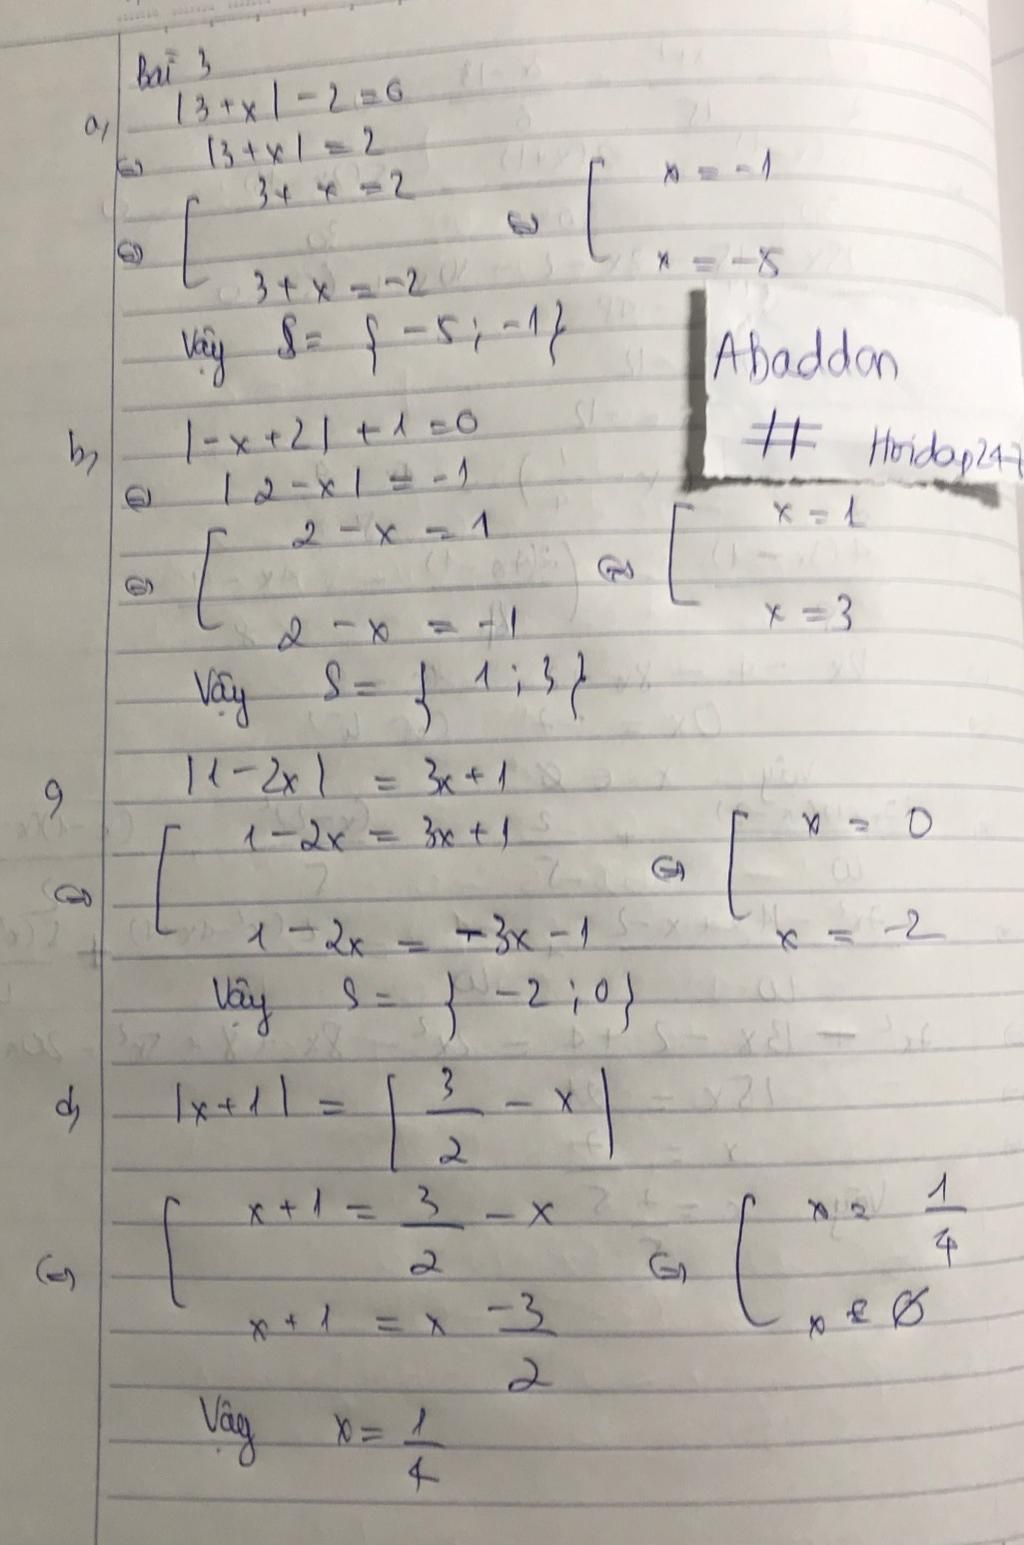 Bài 3
a, |3+x| - 2 = 0
⇔ |3+x| = 2
⇔ [ 3+x = 2 ⇔ [ x = -1
3+x = -2 x = -5
Vậy S = { -5 ; -1 }
Abaddon
# Hoidap247
b, |-x+2| + 1 = 0
⇔ |2-x| = -1
⇔ [ 2 - x = 1 ⇔ [ x = 1
2 - x = -1 x = 3
Vậy S = { 1 ; 3 }
c, |1-2x| = 3x+1
⇔ [ 1-2x = 3x+1 ⇔ [ x = 0
1-2x = -3x-1 x = -2
Vậy S = { -2 ; 0 }
d, |x+1| = | 3/2 - x |
⇔ [ x+1 = 3/2 - x ⇔ [ x = 1/4
x+1 = x - 3/2 x ∈ ∅
Vậy x = 1/4